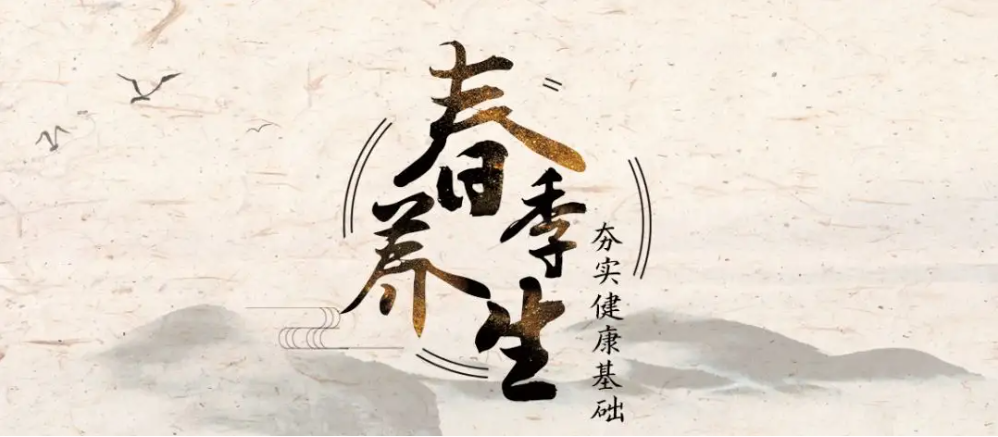 春季
养生
夯实健康基础